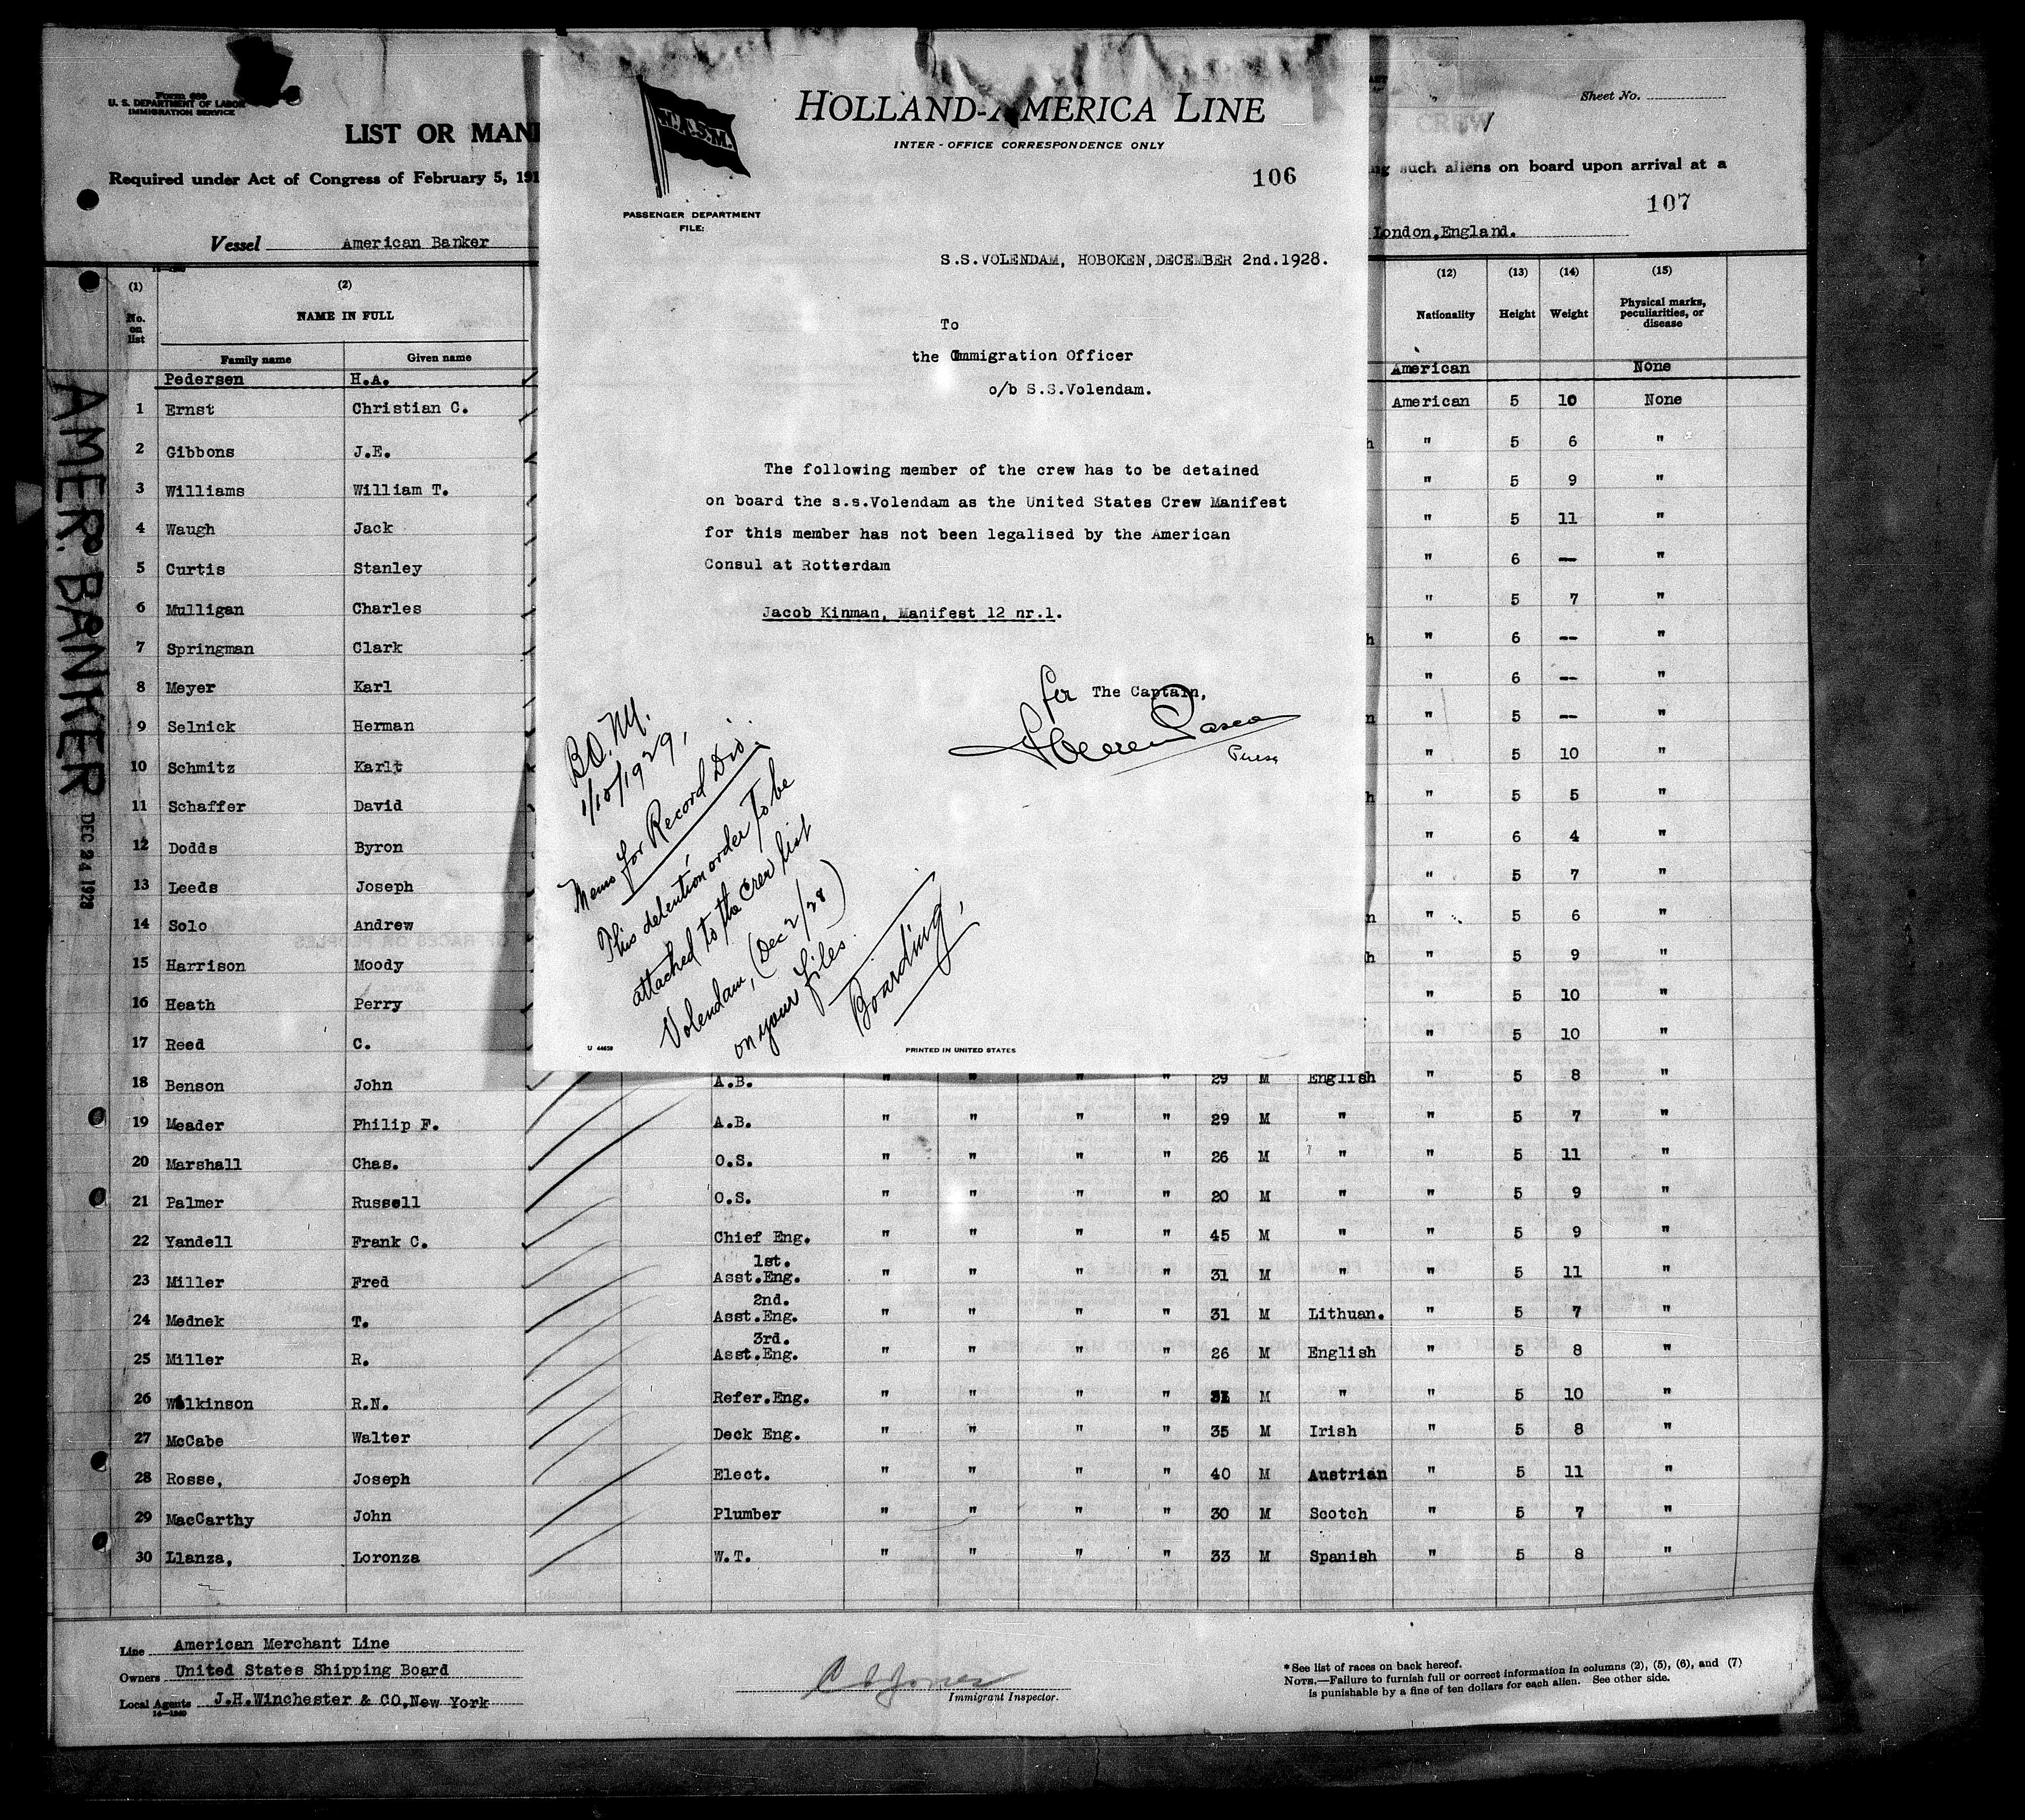 Form 689
U. S. DEPARTMENT OF LABOR
IMMIGRATION SERVICE
LIST OR MANI
Required under Act of Congress of February 5, 191
Vessel American Banker
Sheet No.
OF CREW
ng such aliens on board upon arrival at a
107
London,England.
HOLLAND-AMERICA LINE
INTER-OFFICE CORRESPONDENCE ONLY
N.A.S.M.
106
PASSENGER DEPARTMENT
FILE:
S.S.VOLENDAM, HOBOKEN,DECEMBER 2nd.1928.
To
the Immigration Officer
o/b S.S.Volendam.
The following member of the crew has to be detained
on board the s.s.Volendam as the United States Crew Manifest
for this member has not been legalised by the American
Consul at Rotterdam
Jacob Kinman, Manifest 12 nr.1.
for The Captain,
B.O. NY.
1/15/1929,
Memo for Record Div.
This detention order to be
attached to the crew list
Volendam, (Dec 2/28)
on your files.
Boarding,
U 44659
PRINTED IN UNITED STATES
AMER. BANKER DEC 24 1928
(1) (2) (12) (13) (14) (15)
No. on list NAME IN FULL Nationality Height Weight Physical marks, peculiarities, or disease
Family name Given name
Pedersen H.A. American None
1 Ernst Christian C. American 5 10 None
2 Gibbons J.E. " 5 6 "
3 Williams William T. " 5 9 "
4 Waugh Jack " 5 11 "
5 Curtis Stanley " 6 — "
6 Mulligan Charles " 5 7 "
7 Springman Clark " 6 -- "
8 Meyer Karl " 6 -- "
9 Selnick Herman " 5 -- "
10 Schmitz Karlt " 5 10 "
11 Schaffer David " 5 5 "
12 Dodds Byron " 6 4 "
13 Leeds Joseph " 5 7 "
14 Solo Andrew " 5 6 "
15 Harrison Moody " 5 9 "
16 Heath Perry " 5 10 "
17 Reed C. " 5 10 "
18 Benson John A.B. " " " " 29 M English " 5 8 "
19 Meader Philip F. A.B. " " " " 29 M " " 5 7 "
20 Marshall Chas. O.S. " " " " 26 M " " 5 11 "
21 Palmer Russell O.S. " " " " 20 M " " 5 9 "
22 Yandell Frank C. Chief Eng. " " " " 45 M " " 5 9 "
23 Miller Fred 1st. Asst.Eng. " " " " 31 M " " 5 11 "
24 Mednek T. 2nd. Asst.Eng. " " " " 31 M Lithuan. " 5 7 "
25 Miller R. 3rd. Asst.Eng. " " " " 26 M English " 5 8 "
26 Wilkinson R.N. Refer.Eng. " " " " M " " 5 10 "
27 McCabe Walter Deck Eng. " " " " 35 M Irish " 5 8 "
28 Rosse, Joseph Elect. " " " " 40 M Austrian " 5 11 "
29 MacCarthy John Plumber " " " " 30 M Scotch " 5 7 "
30 Llanza, Loronza W.T. " " " " 33 M Spanish " 5 8 "
Line American Merchant Line
Owners United States Shipping Board
Local Agents J.H.Winchester & CO,New York
14—1240
Jones
Immigrant Inspector.
* See list of races on back hereof.
NOTE.—Failure to furnish full or correct information in columns (2), (5), (6), and (7)
is punishable by a fine of ten dollars for each alien. See other side.